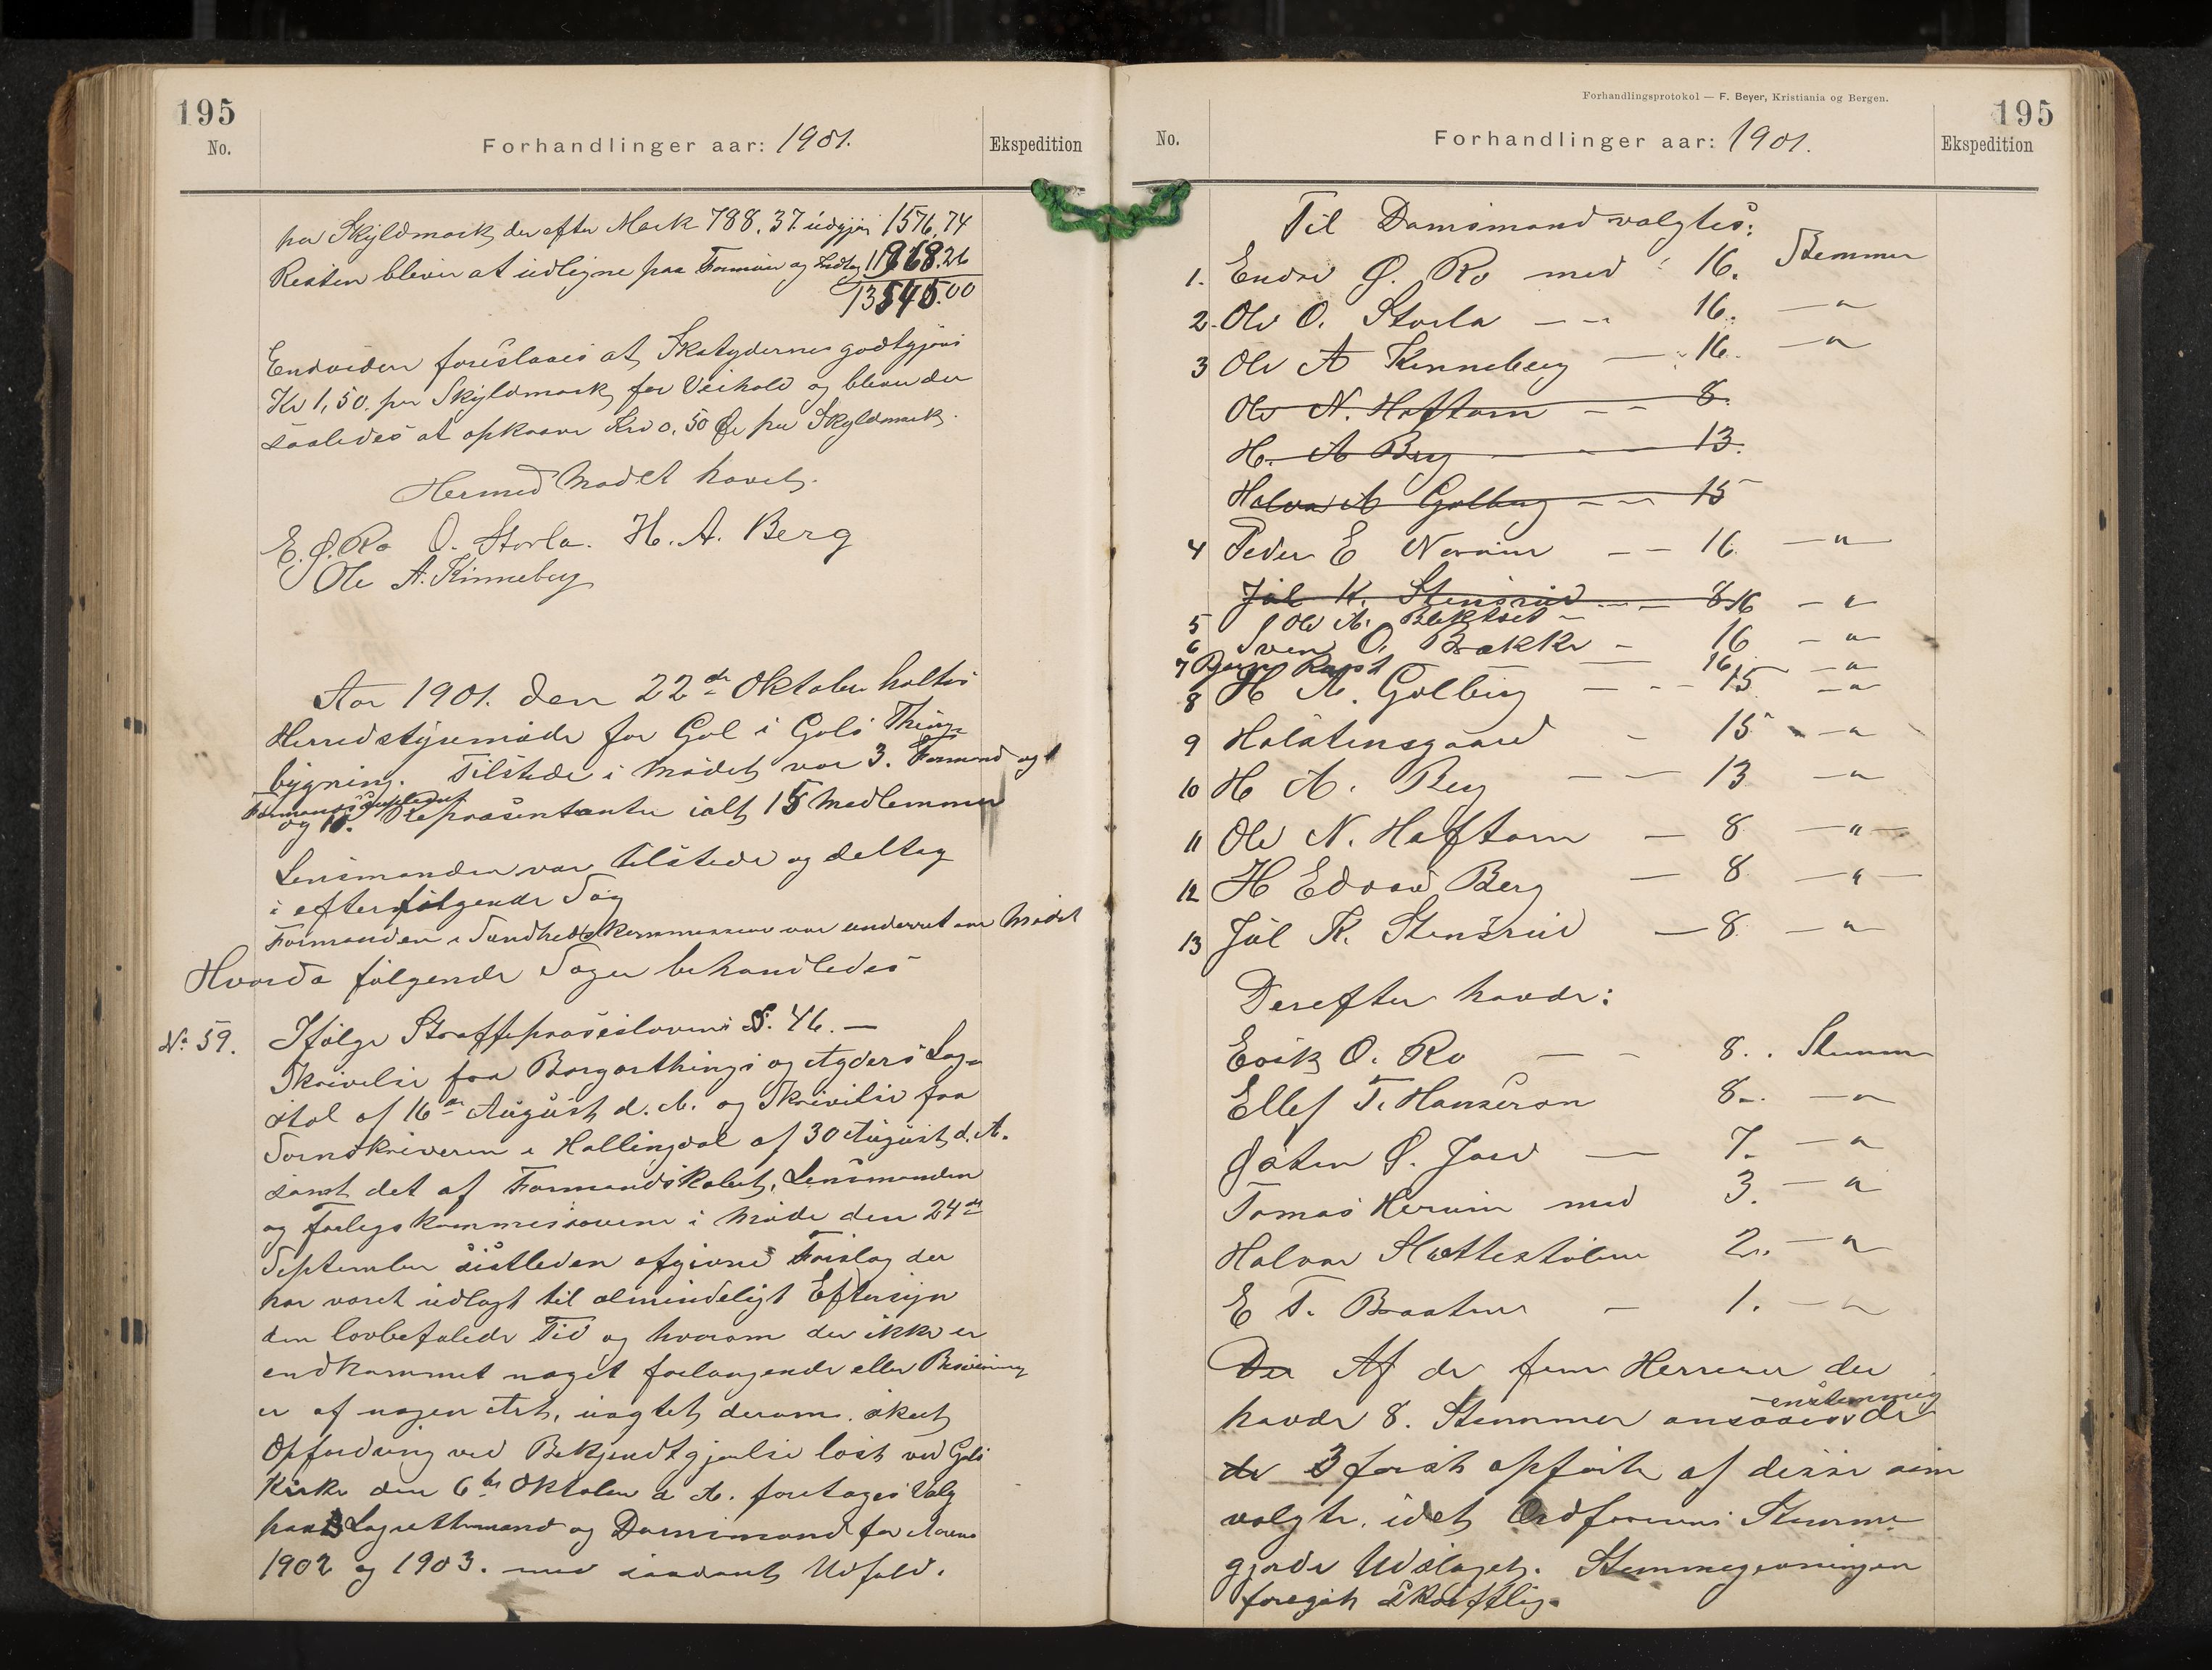 195
No.
Forhandlinger aar: 1901.
Ekspedition
per Skyldmark, der efter Mark 788.37. udgjør 1576,74
Resten bliver at udligne paa Formue og Indtag 11968.26
13545.00
Endvidere foreslaaes at Skatyderne godtgjøres
Kr 1,50. per Skyldmark for Veihold og bliver der
saaledes at opkræve Kr 0,50 Øre per Skyldmark.
Hermed Mødet hævet.
E. Ø. Ro O. Storla. H. A. Berg
Ole A. Kinneberg
Aar 1901. den 22de Oktober holtes
Herredstyremøde for Gol i Gols Thing-
bygning. Tilstede i Mødet var 3. Formænd og 1
Formandssuppleant
og 11. Repræsentanter ialt 15 Medlemmer
Lensmanden var tilstede og deltog
i efterfølgende Sag
Formanden i Sundhedskommissionen var underret om Mødet
Hvorda følgende Sager behandledes
No 59. Ifølge Straffeproseslovens §. 46. —
Skrivelse fra Borgarthings og Agders Lag-
stol af 16de August d. A. og Skrivelse fra
Sorenskriveren i Hallingdal af 30 August, d. A.
samt det af Formandskabet, Lensmanden
og Forligskommissionen i Møde den 24de
September sistleden afgivne Forslag der
har været udlagt til almindeligt Eftersyn
den lovbefalede Tid og hvorom der ikke er
endkommet noget forlangende eller Besværing
er af nogen Art, uagtet derom skeet
Opfordring ved Bekjendtgjørelse læst ved Gols
Kirke den 6te Oktober d A. foretages Valg
paa Lagrettemænd og Domsmænd for Aarene
1902 og 1903. med saadant Udfald.
Forhandlingsprotokol — F. Beyer, Kristiania og Bergen.
195
No.
Forhandlinger aar: 1901.
Ekspedition
Til Domsmænd valgtes:
1. Endre Ø. Ro med 16. Stemmer
2. Ole O. Storla — — 16. — " —
3 Ole A Kinneberg — 16. — "
Ole N. Haftorn — — 8.
H. A Berg — — 13.
Halvor A Golberg — — 15
4 Peder E Noraim — — 16 — " —
Jul K. Stensrud — — 8
5 Ole A. — 16 — "
6 Sven O. Brække — 16 — "
7 Bjørn — 16. — "
8 H A. Golberg — — 15 — "
9 Halstensgaard — 15 — "
10 H A. Berg — — 13 — "
11 Ole N. Haftorn — 8 — " —
12 H Edvard Berg — 8 — " —
13 Jul K. Stensrud — 8. — "
Derefter havde:
Erik O. Ro — — 8. . Stemmer
Ellef T. Hanserson 8. — "
Østen Ø. Jord — 7. — "
Tomas Heruim med 3. — "
Halvor Slettestølen 2. — "
E T. Braaten — 1. — "
Der Af de fem Herrerer der
enstemmig
havde 8. Stemmer ansaaes de
de 3 først opførte af disse som
valgte, idet Ordførerens Stemme
gjorde Udslaget. Stemmegivningen
foregik skriftlig.